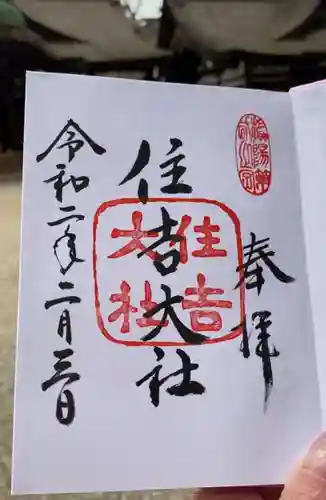 奉拝
住吉大社
住吉大社
令和二年二月三日